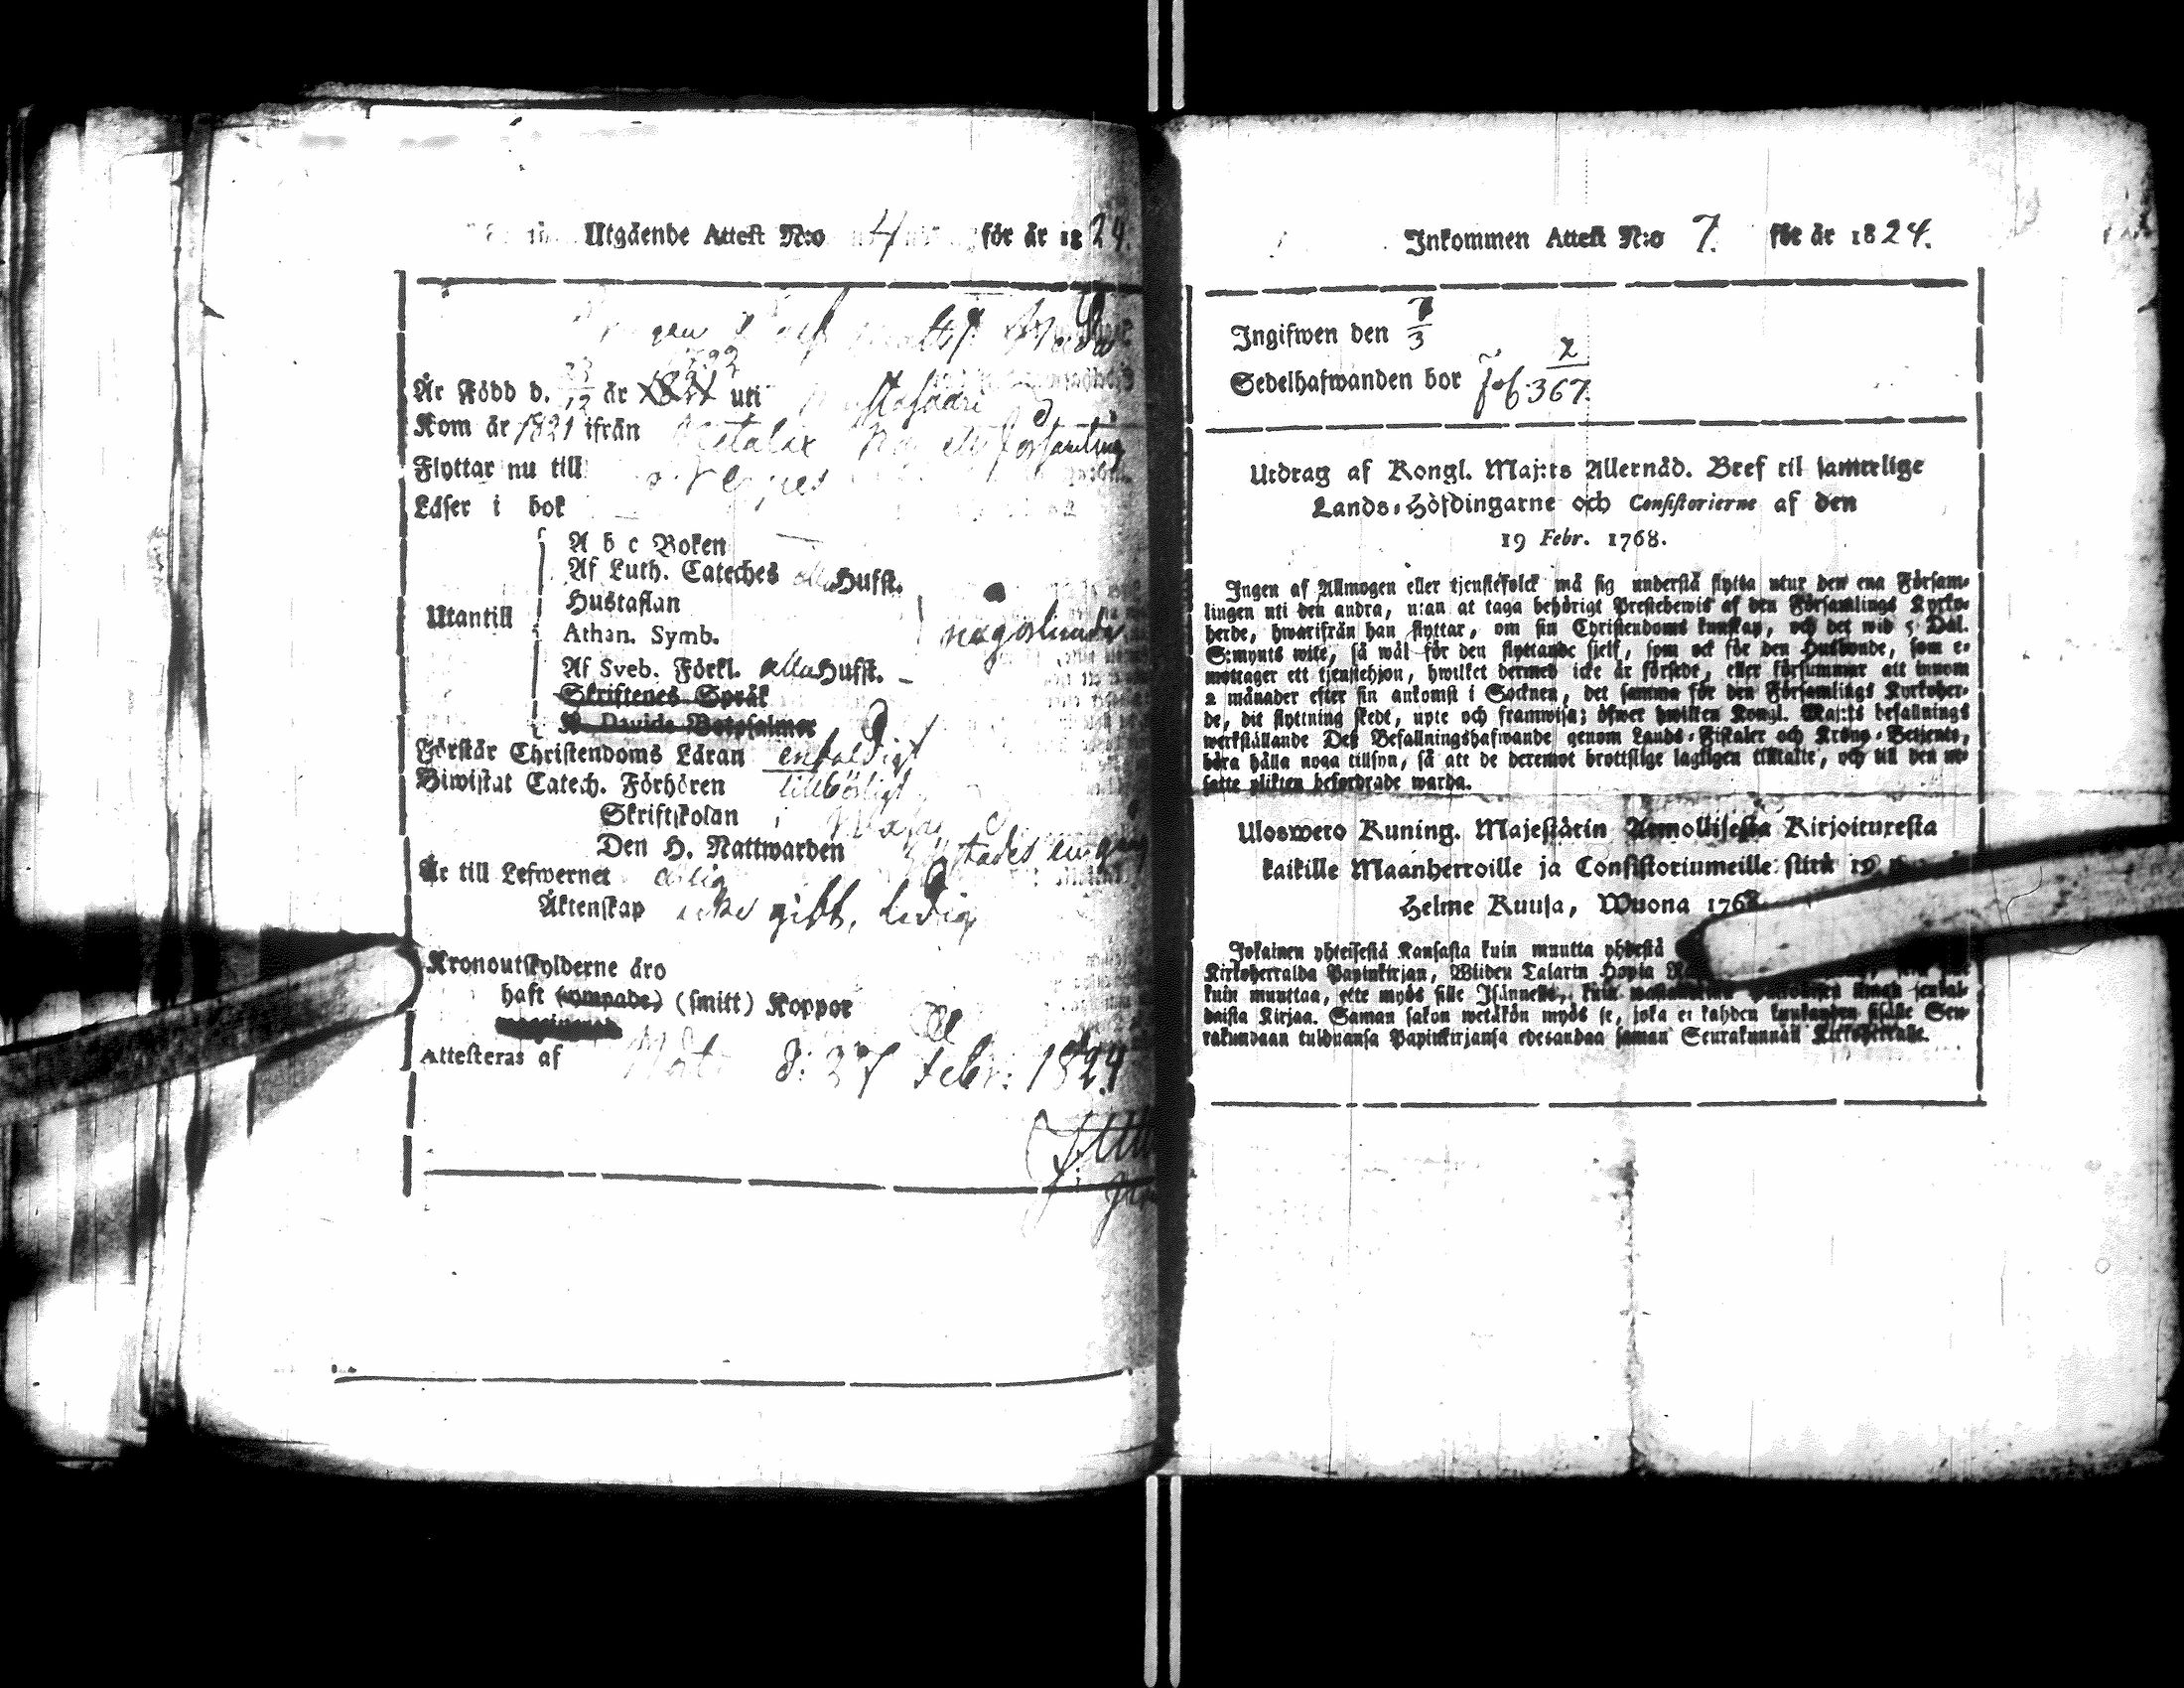 Utgående Attest N:o 4 för år 1824.
Är Född d. 23/12 år 1792 uti
Kom år 1821 ifrån församling
Flyttar nu till
Läser i bok
A b c Boken
Af Luth. Cateches alla Hufst.
Utantill Hustaflan
Athan. Symb. någorlunda
Af Sveb. Förkl. alla Hufst.
Skriftenes Språk
K. Davids Botpsalmer
Förstår Christendoms Läran enfaldigt
Biwistat Catech. Förhören tillbörligt
Skriftskolan
Den H. Nattwarden
Är till Lefwernet
Äktenskap icke gift, ledig
Kronoutskylderne äro
haft (ympade) (smitt) Koppor
Attesteras af d: 27 Febr: 1824
Inkommen Attest N:o 7. för år 1824.
Ingifwen den 7/3
Sedelhafwanden bor fol. 367.
Utdrag af Kongl. Maj:ts Allernåd. Bref til samtelige
Lands-Höfdingarne och Consistorierne af den
19 Febr. 1768.
Ingen af Allmogen eller tjenstefolck må sig understå flytta utur den ena Försam-
lingen uti den andra, utan at taga behörigt Prestebewis af den Församlings Kyrko-
herde, hwarifrån han flyttar, om sin Christendoms kunskap, och det wid 5 Dal.
S:mynts wite, så wäl för den flyttande sjelf, som ock för den Husbonde, som e-
mottager ett tjenstehjon, hwilket dermed icke är försedt, eller försummar att innom
2 månader efter sin ankomst i Socknen, det samma för den Församlings Kyrkoher-
de, dit flyttning skedt, upte och framwisa; öfwer hwilken Kongl. Maj:ts befallnings
werkställande Des Befallningshafwande genom Lands-Fiskaler och Krono-Betjente,
böra hålla noga tillsyn, så att de deremot brottslige lagligen tilltalte, och till den ut-
satte plikten befordrade warda.
Ulosweto Kuning. Majestätin Armollisesta Kirjoituxesta
kaikille Maanherroille ja Consistoriumeille siitä 19
Helme Kuusa, Wuona 1768.
Jokainen yhteisestä Kansasta kuin muutta yhdestä
Kirkoherralda Papinkirjan, Wiiden Talarin Hopia
kuin muuttaa, ette myös sille Isännelle, kuin
daista Kirjaa. Saman sakon wetäkön myös se, joka ei kahden kuukauden sisälle Seu-
rakundaan tulduansa Papinkirjansa edesandaa saman Seurakunnan Kirkoherralle.